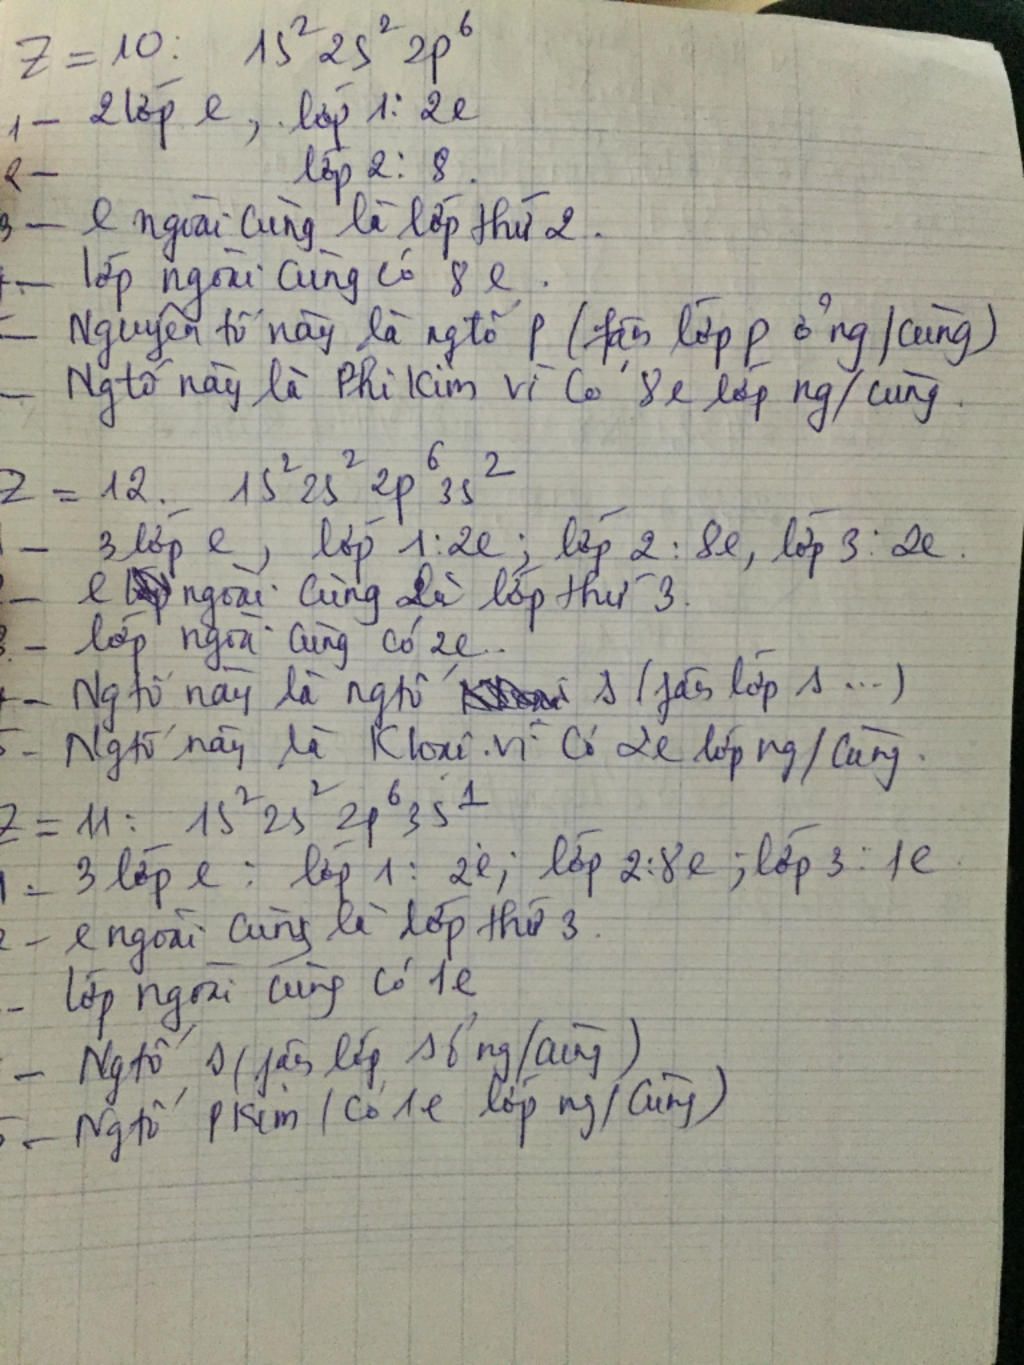 Z = 10: 1s² 2s² 2p⁶
1 - 2 lớp e, lớp 1: 2e
2 - lớp 2: 8.
3 - e ngoài cùng là lớp thứ 2.
- lớp ngoài cùng có 8 e.
- Nguyên tố này là ngtố p (fân lớp p ở ng/cùng)
- Ngtố này là Phi Kim vì có 8e lớp ng/cùng.
Z = 12. 1s² 2s² 2p⁶ 3s²
1 - 3 lớp e, lớp 1: 2e; lớp 2: 8e, lớp 3: 2e.
2 - e ngoài cùng là lớp thứ 3.
3 - lớp ngoài cùng có 2e..
4 - Ngtố này là ngtố s (fân lớp s ...)
5 - Ngtố này là Kloại vì có 2e lớp ng/cùng.
Z = 11: 1s² 2s² 2p⁶ 3s¹
1 - 3 lớp e: lớp 1: 2e; lớp 2: 8e; lớp 3: 1e.
2 - e ngoài cùng là lớp thứ 3.
- lớp ngoài cùng có 1e
- Ngtố s (fân lớp s ở ng/cùng)
5 - Ngtố pKim (có 1e lớp ng/cùng)